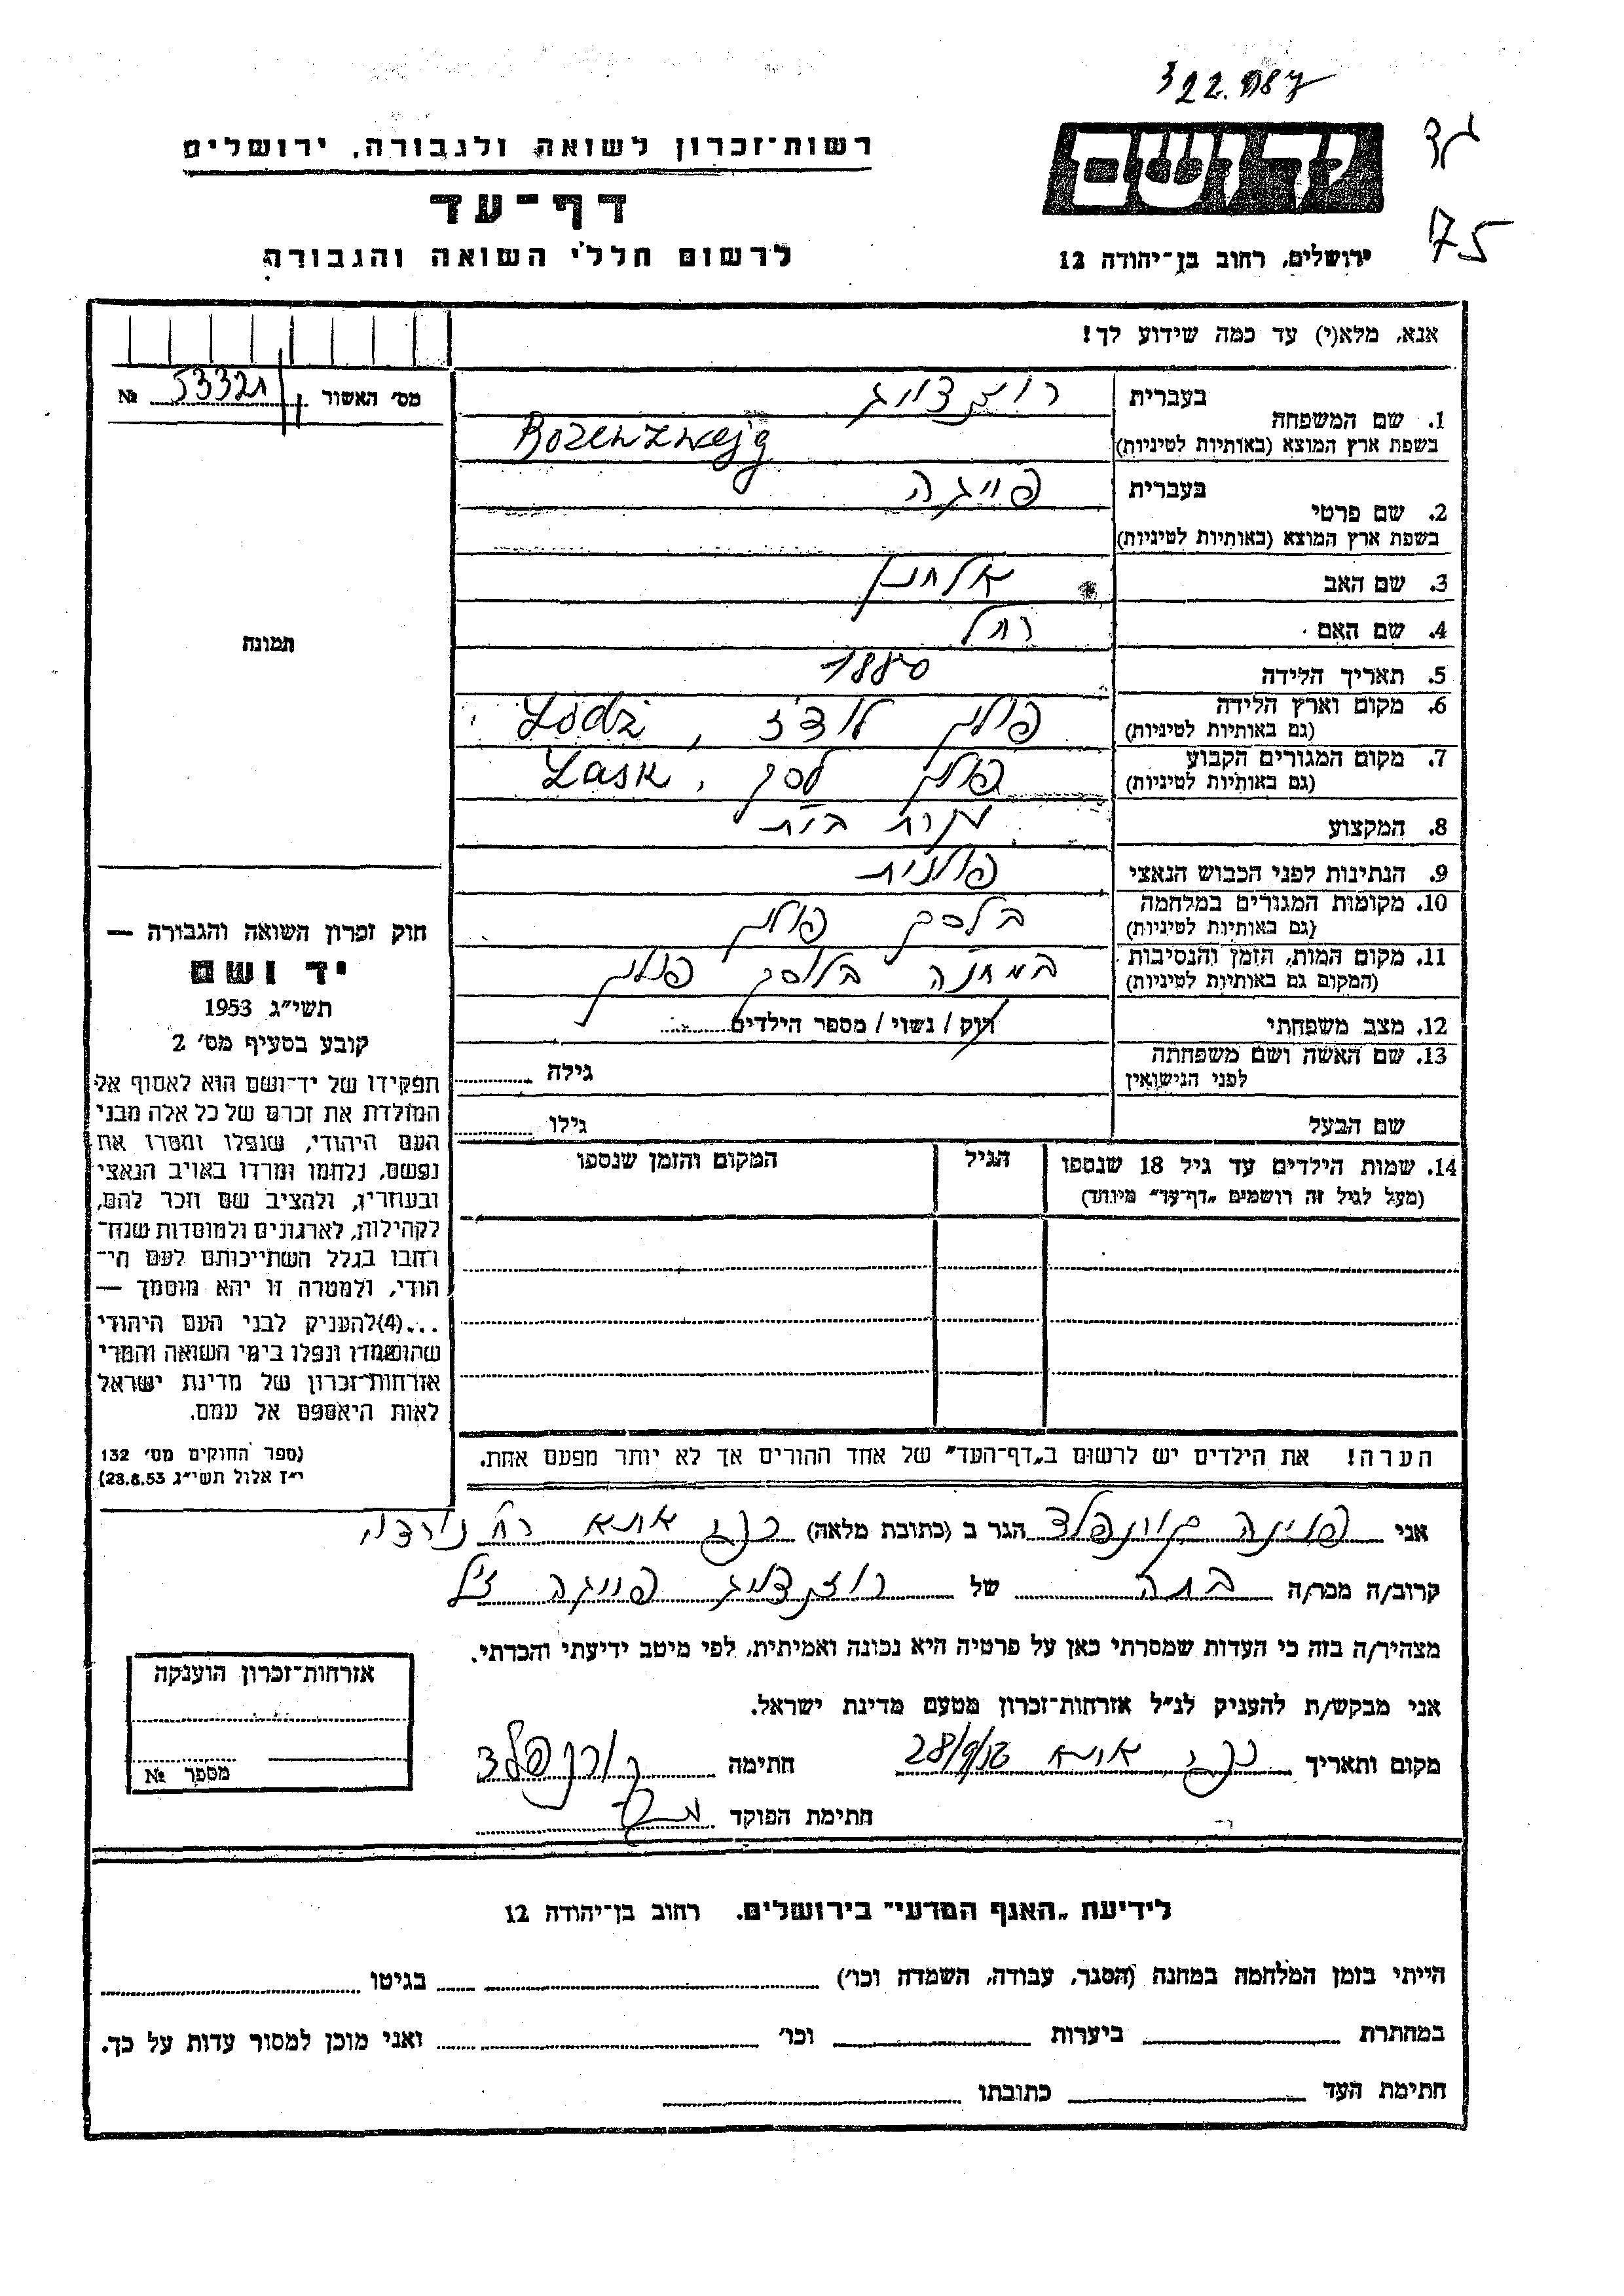 322.987
יד ושם
75
רשות־זכרון לשואה ולגבורה, ירושלים
דף־עד
לרשום חללי השואה והגבורה
ירושלים, רחוב בן־יהודה 12
אנא, מלא(י) עד כמה שידוע לך!
מס׳ האשור № 53321
1. שם המשפחה
בעברית רוזנצוייג
בשפת ארץ המוצא (באותיות לטיניות) Rozenzwejg
2. שם פרטי
בעברית פייגה
בשפת ארץ המוצא (באותיות לטיניות)
3. שם האב אלחנן
4. שם האם רחל
5. תאריך הלידה 1880
6. מקום וארץ הלידה פולין לודז׳, Łódź
(גם באותיות לטיניות)
7. מקום המגורים הקבוע פולין לסק, Łask
(גם באותיות לטיניות)
8. המקצוע עקרת בית
9. הנתינות לפני הכבוש הנאצי פולנית
10. מקומות המגורים במלחמה בלסק פולין
(גם באותיות לטיניות)
11. מקום המות, הזמן והנסיבות במחנה בלסק פולין
(המקום גם באותיות לטיניות)
12. מצב משפחתי רוק / נשוי / מספר הילדים
13. שם האשה ושם משפחתה גילה
לפני הנישואין
שם הבעל גילו
14. שמות הילדים עד גיל 18 שנספו הגיל המקום והזמן שנספו
(מעל לגיל זה רושמים „דף־עד״ מיוחד)
הערה! את הילדים יש לרשום ב„דף־העד״ של אחד ההורים אך לא יותר מפעם אחת.
תמונה
חוק זכרון השואה והגבורה —
יד ושם
תשי״ג 1953
קובע בסעיף מס׳ 2
תפקידו של יד־ושם הוא לאסוף אל
המולדת את זכרם של כל אלה מבני
העם היהודי, שנפלו ומסרו את
נפשם, נלחמו ומרדו באויב הנאצי
ובעוזריו, ולהציב שם וזכר להם,
לקהילות, לארגונים ולמוסדות שנח־
רחבו בגלל השתייכותם לעם הי־
הודי, ולמטרה זו יהא מוסמך —
...(4)להעניק לבני העם היהודי
שהושמדו ונפלו בימי השואה והמרי
אזרחות־זכרון של מדינת ישראל
לאות היאספם אל עמם.
(ספר החוקים מס׳ 132
י״ז אלול תשי״ג 28.8.53)
אני פנינה קורנפלד הגר ב (כתובת מלאה) כפר אתא רח׳ נורדה
קרוב/ה מכר/ה בתה של רוזנצוייג פייגה ז״ל
מצהיר/ה בזה כי העדות שמסרתי כאן על פרטיה היא נכונה ואמיתית, לפי מיטב ידיעתי והכרתי.
אני מבקש/ת להעניק לנ״ל אזרחות־זכרון מטעם מדינת ישראל.
מקום ותאריך כפר אתא חתימה קורנפלד
חתימת הפוקד
אזרחות־זכרון הוענקה
מספר №
לידיעת „האגף המדעי״ בירושלים, רחוב בן־יהודה 12
הייתי בזמן המלחמה במחנה (הסגר, עבודה, השמדה וכו׳) בגיטו
במחתרת ביערות וכו׳ ואני מוכן למסור עדות על כך.
חתימת העד כתובתו